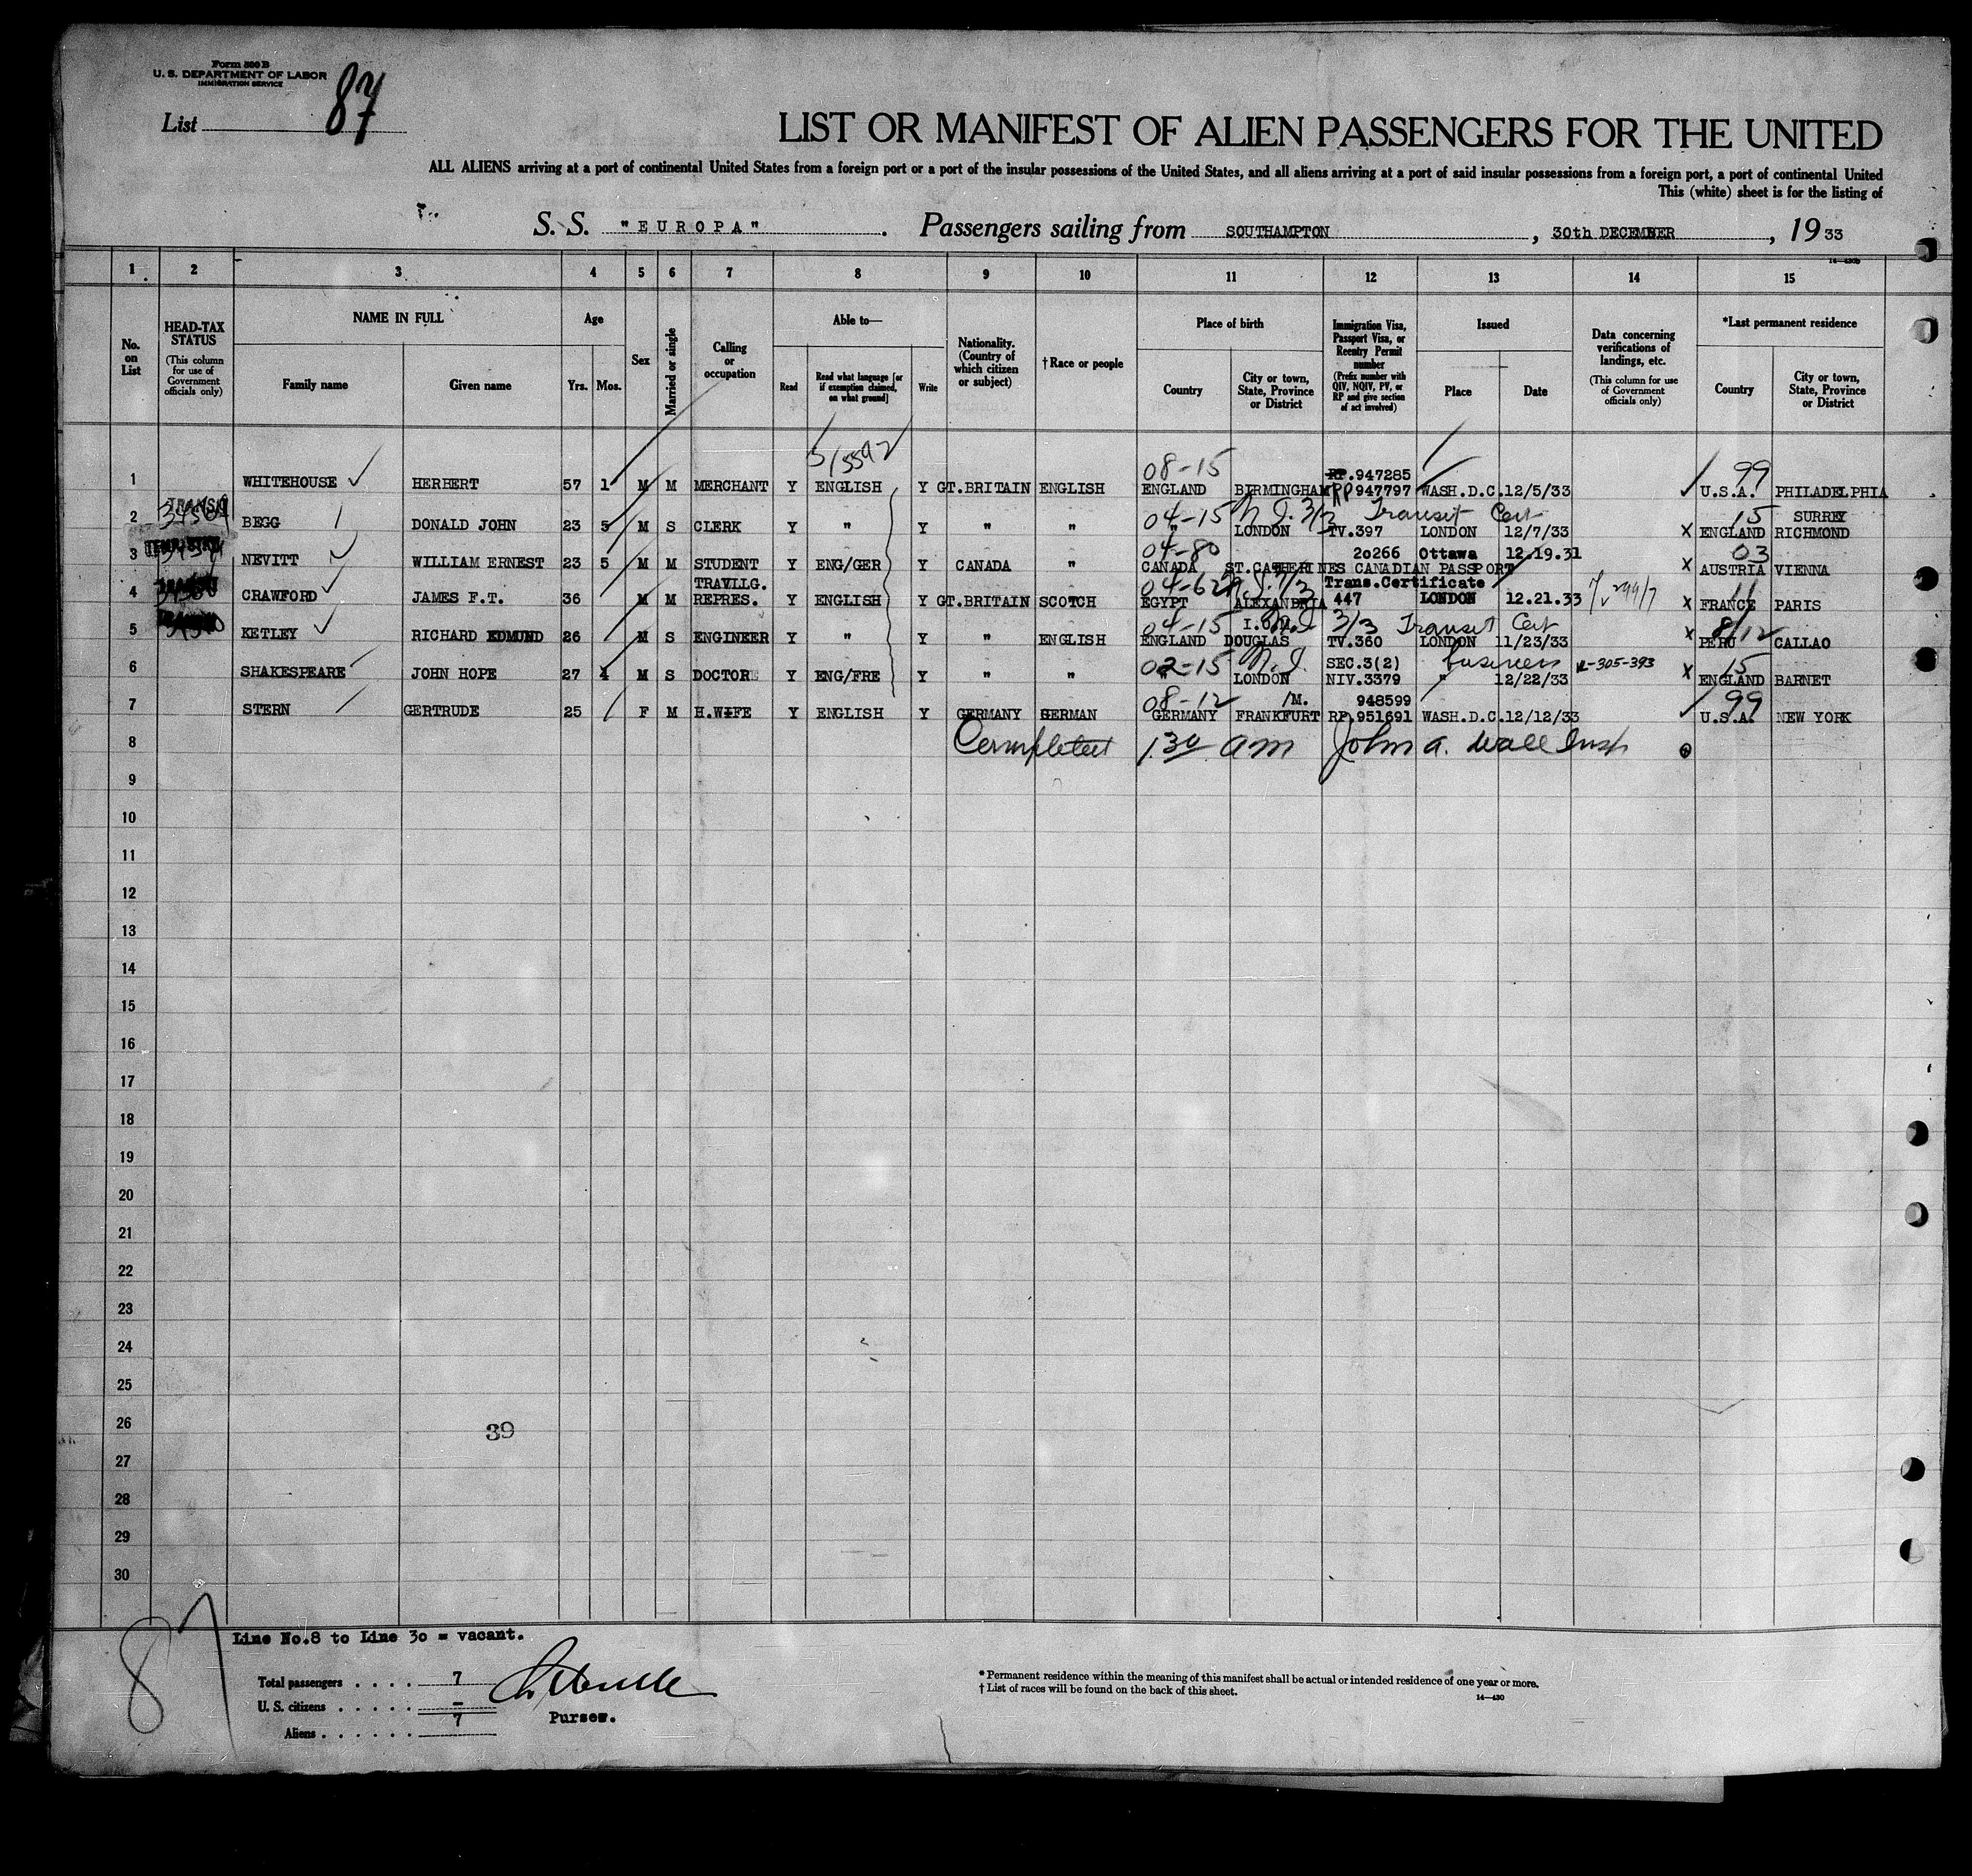 Form 500 B
U. S. DEPARTMENT OF LABOR
IMMIGRATION SERVICE
List 87
LIST OR MANIFEST OF ALIEN PASSENGERS FOR THE UNITED
ALL ALIENS arriving at a port of continental United States from a foreign port or a port of the insular possessions of the United States, and all aliens arriving at a port of said insular possessions from a foreign port, a port of continental United
This (white) sheet is for the listing of
S. S. "EUROPA". Passengers sailing from SOUTHAMPTON, 30th DECEMBER, 1933
1 2 3 4 5 6 7 8 9 10 11 12 13 14 15
No. on List
HEAD-TAX STATUS (This column for use of Government officials only)
NAME IN FULL
Family name Given name
Age
Yrs. Mos.
Sex
Married or single
Calling or occupation
Able to—
Read Read what language [or if exemption claimed, on what ground] Write
Nationality. (Country of which citizen or subject)
† Race or people
Place of birth
Country City or town, State, Province or District
Immigration Visa, Passport Visa, or Reentry Permit number (Prefix number with QIV, NQIV, PV, or RP and give section of act involved)
Issued
Place Date
Data concerning verifications of landings, etc. (This column for use of Government officials only)
*Last permanent residence
Country City or town, State, Province or District
08-15 RP.947285 99
1 WHITEHOUSE HERBERT 57 1 M M MERCHANT Y ENGLISH Y GT.BRITAIN ENGLISH ENGLAND BIRMINGHAM RP 947797 WASH.D.C. 12/5/33 U.S.A. PHILADELPHIA
TRANSIT 04-15 N.I. 3/3 Transit Cert 15 SURREY
2 BEGG DONALD JOHN 23 5 M S CLERK Y " Y " " " LONDON TV.397 LONDON 12/7/33 X ENGLAND RICHMOND
04-80 20266 Ottawa 12.19.31 03
3 NEVITT WILLIAM ERNEST 23 5 M M STUDENT Y ENG/GER Y CANADA " CANADA ST.CATHERINES CANADIAN PASSPORT X AUSTRIA VIENNA
TRAVLLG. 04-62 Trans.Certificate 11
4 CRAWFORD JAMES F.T. 36 M M REPRES. Y ENGLISH Y GT.BRITAIN SCOTCH EGYPT ALEXANDRIA 447 LONDON 12.21.33 X FRANCE PARIS
04-15 I.O.M. 3/3 Transit Cert 8/12
5 KETLEY RICHARD EDMUND 26 M S ENGINEER Y " Y " ENGLISH ENGLAND DOUGLAS TV.360 LONDON 11/23/33 X PERU CALLAO
02-15 N.I. SEC.3(2) business 15
6 SHAKESPEARE JOHN HOPE 27 4 M S DOCTOR Y ENG/FRE Y " " " LONDON NIV.3379 " 12/22/33 X ENGLAND BARNET
08-12 /M. 948599 99
7 STERN GERTRUDE 25 F M H.WIFE Y ENGLISH Y GERMANY GERMAN GERMANY FRANKFURT RP.951691 WASH.D.C. 12/12/33 U.S.A. NEW YORK
8 Completed 1.30 am John A. Wall Insp
9
10
11
12
13
14
15
16
17
18
19
20
21
22
23
24
25
26
39
27
28
29
30
87
Line No.8 to Line 30 = vacant.
Total passengers . . . . 7
U. S. citizens . . . . . –
Aliens . . . . . . 7
Purser.
* Permanent residence within the meaning of this manifest shall be actual or intended residence of one year or more.
† List of races will be found on the back of this sheet.
14—430